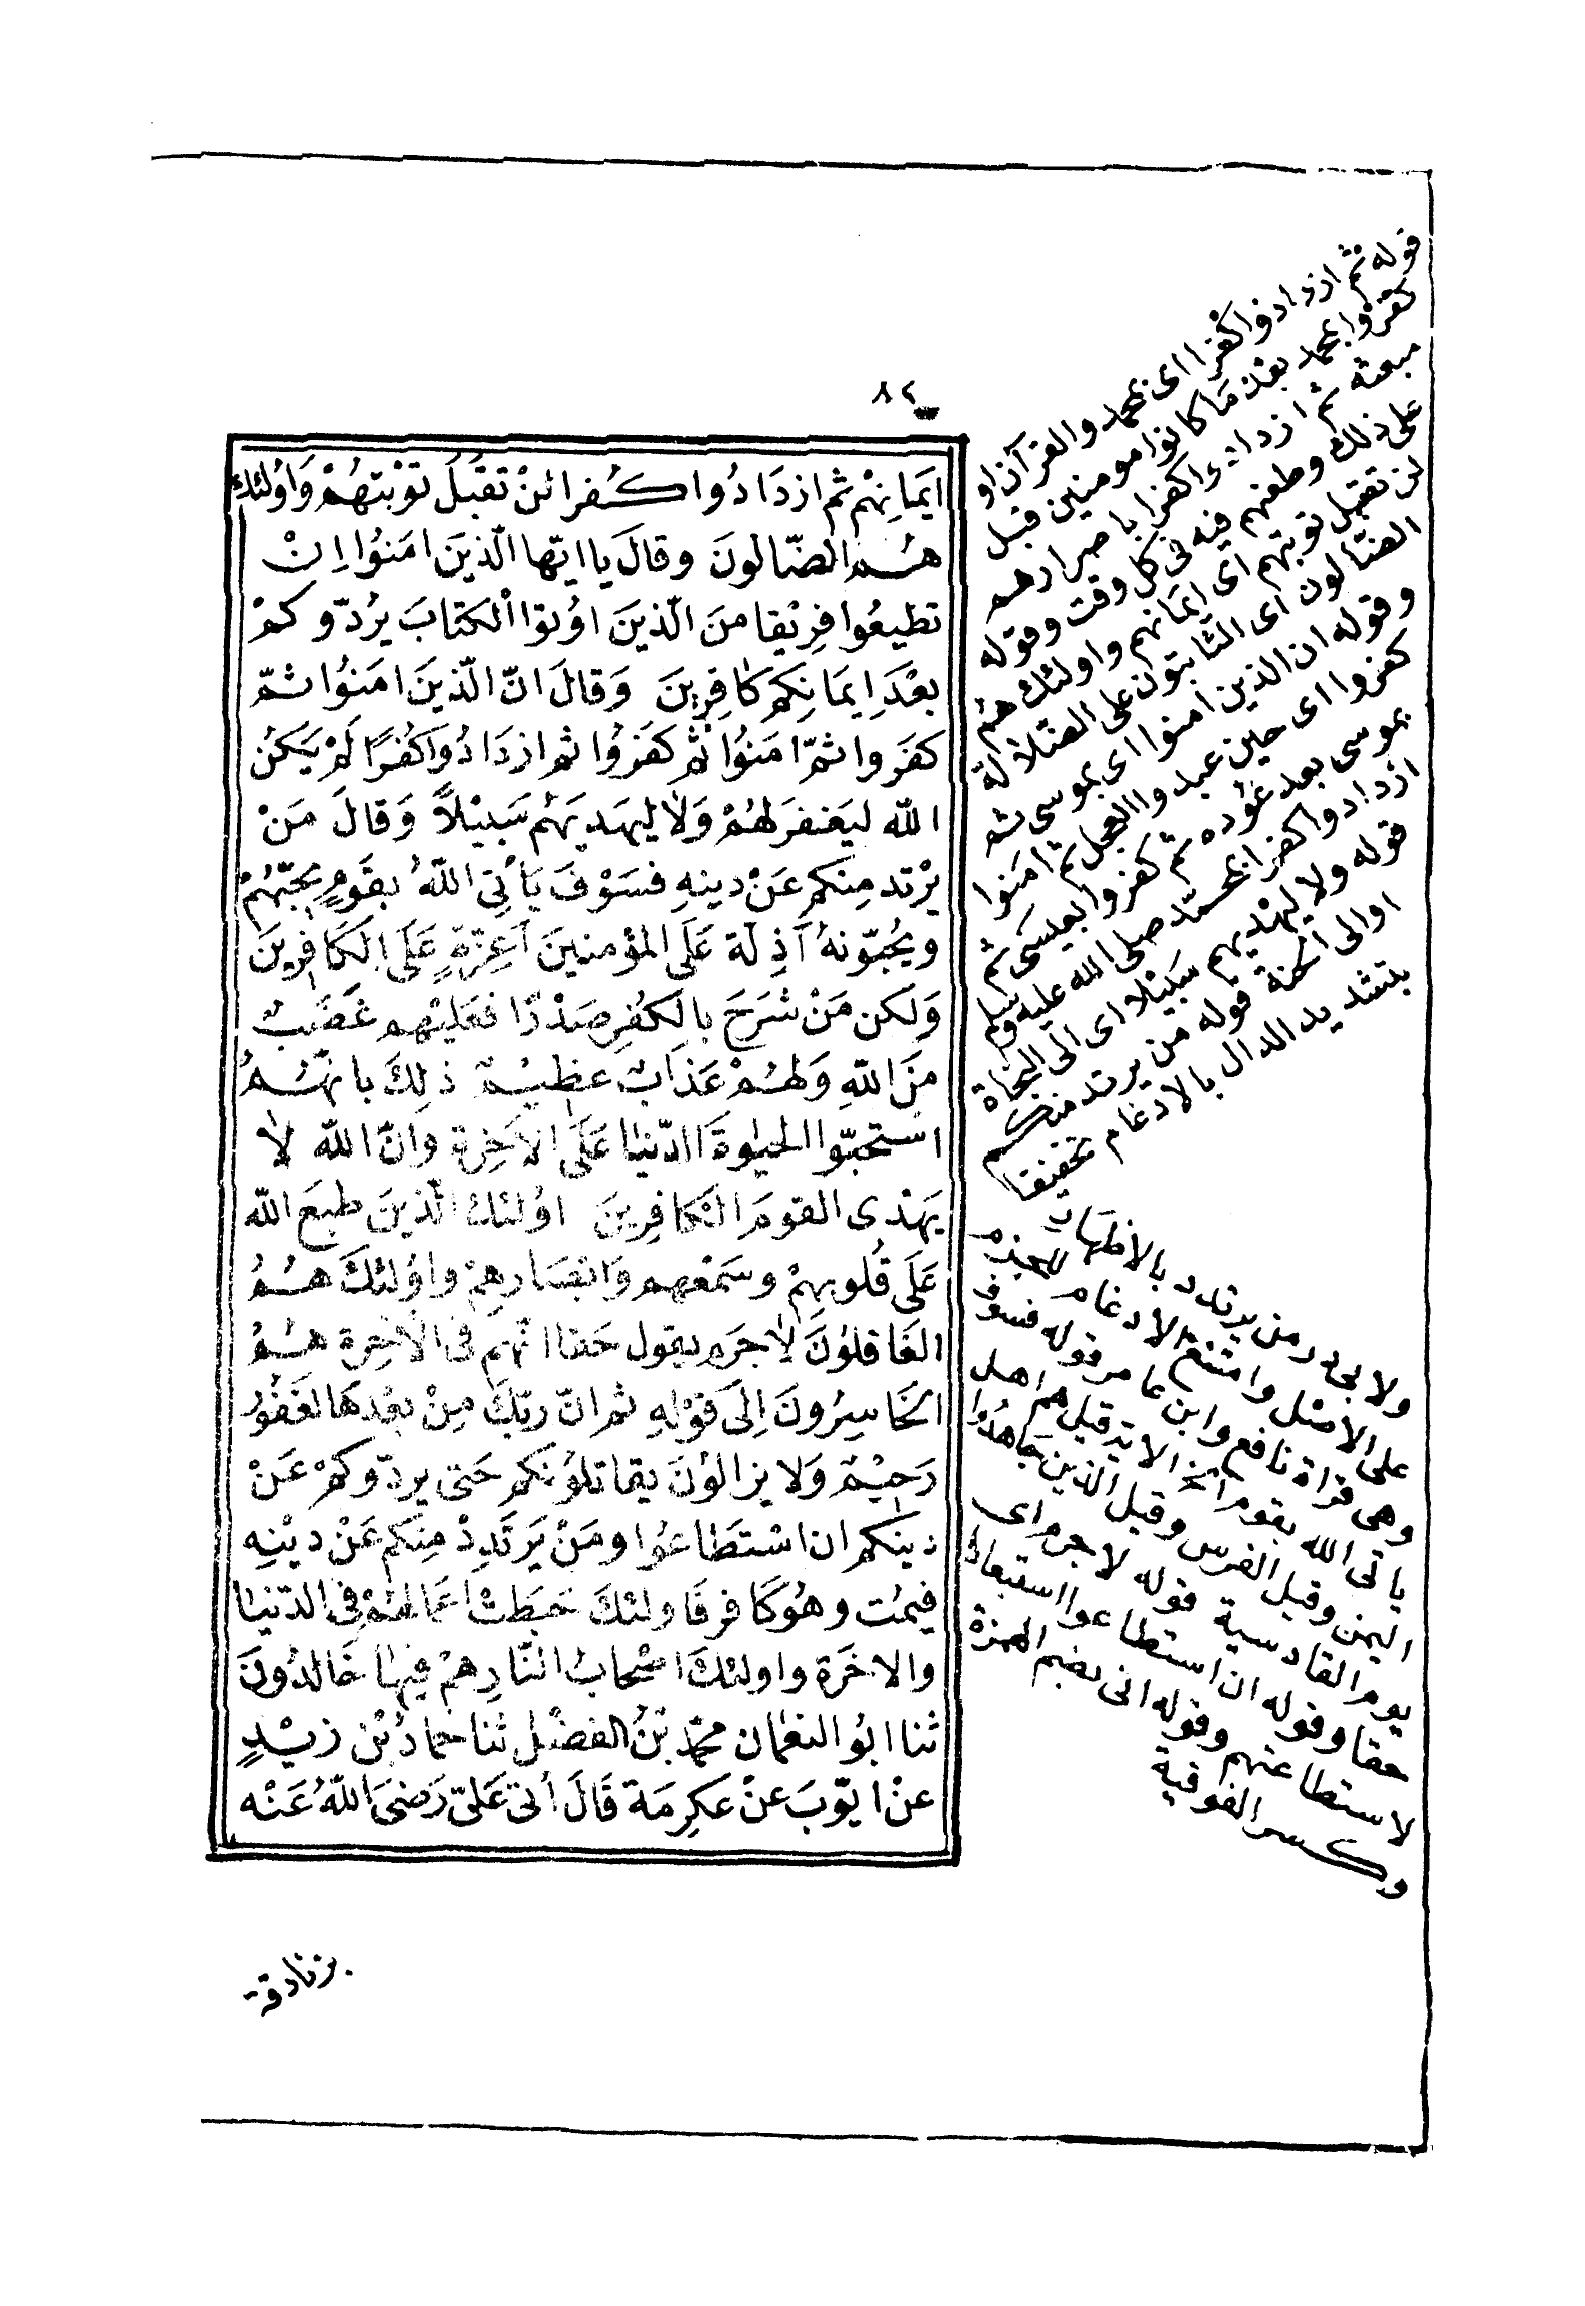 ٨٢
ايمَانِهْم ثم ازدَادُوا كُفرا لنْ تقبَلَ توْبتهُمْ وَاوُلئك
هُم الضّالونَ وقالَ يا ايّها الّذينَ امَنوُا اِنْ
تطيعُوا فرِيْقا منَ الّذينَ اوُتوا الْكتابَ يرُدّوكمْ
بعْدَ اِيمَانِكم كافِرِينَ وَقالَ انّ الّذينَ امَنوُا ثمّ
كفَروا ثمّ امَنوُا ثمّ كفَروُا ثم ازدَادُوا كفُرًا لَمْ يَكنُ
الله ليَغفرَ لهُمْ وَلا ليهَديَهمُ سَبيْلاً وَقالَ مَنْ
يرْتد مِنكم عَنْ دينهِ فسَوْفَ يَأتِى اللهُ بقَومٍ يحبّهُمْ
ويحُبّونهُ آذِلة عَلَى المؤمنينَ اَعِزّةٍ عَلَى الكَافِرِينَ
وَلكن مَنْ شرَحَ بالكفُرِ صَدْرًا فعَليْهم غضَبٌ
منَ اللهِ وَلهُمْ عَذابٌ عظيمٌ ذلِكَ بانهّمُ
استحبّوا الحيٰوةَ الدّنيا عَلَى الآخرِة وانّ الله لا
يَهْدى القومَ الكافِرِينَ اوُلئكَ الّذينَ طبعَ الله
عَلَى قُلوبِهمْ وسَمْعهم وَابْصَارِهِمْ واوُلئكَ همُ
الغَافلوُنَ لا جرَم يقول حَقا انّهم فى الآخِرة همُ
الخَاسِرُونَ اِلىَ قوْلهِ ثم انّ ربّكَ مِنْ بعْدهَا لغَفوُر
رَحيْمٌ وَلا يزالوُنَ يقاتلوُنكم حَتى يردّوكمْ عَنْ
دينكم ان اسْتطَاعوُا ومَنْ يَرتَدِدْ مِنكم عَنْ ديْنهِ
فيمُت وهُوَ كافر فاولئكَ حَبطَتْ اعمَالهُمْ فى الدّنيا
والاخرَة واولئكَ اصْحابُ النّارِ همْ فيْها خَالدُونَ
ثنا ابوُ النعْمان محمّد بْنُ الفضْل ثنا حمادُ بْن زيْدٍ
عنْ ايوّبَ عنْ عَكرِمَة قَالَ أتى عَلىّ رَضىَ اللهُ عَنْه
قوله ثم ازدادوا كفرا اى بمحمد والقرآن او
كفروا بمحمد بعد ما كانوا مومنين قبل
مبعثه ثم ازدادوا كفرا با صرارهم
على ذلك وطعنهم فيه فى كل وقت وقوله
لن تقبل توبتهم اى ايمانهم واولئك هم
الضالون اى الثابتون على الضلالة
وقوله ان الذين امنوا اى بموسى ثم
كفروا اى حين عبدوا العجل ثم امنوا
بموسى بعد عوده ثم كفروا بعيسى ثم
ازدادوا كفرا بمحمد صلى الله عليه وسلم
قوله ولا ليهديهم سبيلا اى الى النجاة
اوالى الجنة قوله من يرتد منكم
بتشديد الدال بالادغام تخفيفا
ولابى ذر من يرتدد بالاظهار
على الاصل وامتنع الادغام للجزم
وهى قراة نافع وابن عامر قوله فسوف
ياتى الله بقوم الخ الاية قيل هم اهل
اليمن وقيل الفرس وقيل الذين جاهدوا
يوم القادسية قوله لاجرم اى
حقا وقوله ان استطاعوا استبعاد
لاستطاعتهم وقوله اتى بضم الهمزة
وكسر الفوقية
بزنادقة